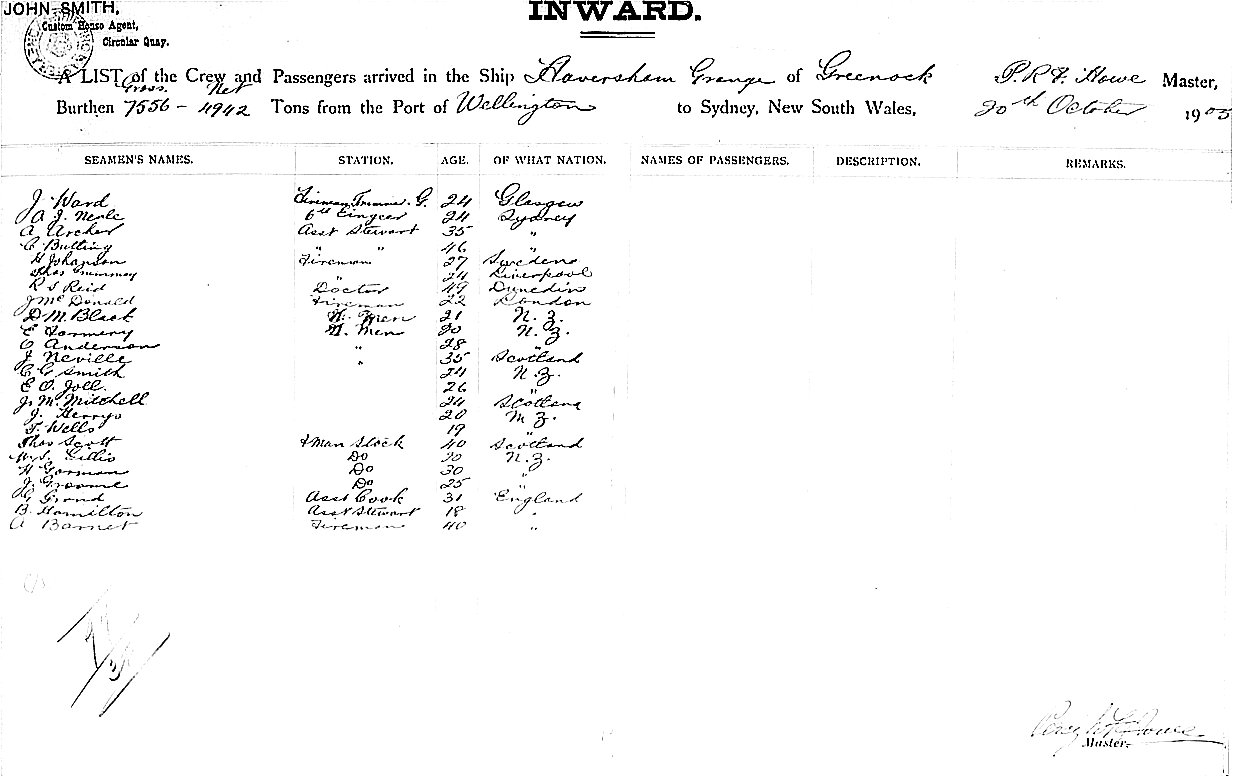 JOHN SMITH,
INWARD.
Custom House Agent,
Circular Quay.
A LIST of the Crew and Passengers arrived in the Ship Haversham Grange of Greenock P.R.F. Howe Master,
Gross Net
Burthen 7556 - 4942 Tons from the Port of Wellington to Sydney, New South Wales, 20th October 1905
SEAMEN'S NAMES. STATION. AGE. OF WHAT NATION. NAMES OF PASSENGERS. DESCRIPTION. REMARKS.
J. Ward Fireman G. 24 Glasgow
A J. 6th 24 Sydney
A Archer Asst Stewart 35 "
C Butting " " 46 "
H Johanson Fireman 27 Swedena
Thos " 24 Liverpool
R S Reid Doctor 49 Dunedin
J McDonald Fireman 22 London
D M. Black W. Men 21 N. Z.
E W. Men 20 N. Z.
C Anderson " 28 "
J Neville " 35 Scotland
C G Smith 24 N. Z.
E O. Joll. 26 "
J. M. Mitchell 24 Scotland
J. 20 N Z.
T. Wells 19 "
Thos Scott F Man Stock 40 Scotland
W. S. Gillis Do 20 N. Z.
H Gorman Do 30 "
J. Groome Do 25 "
G Asst Cook 31 England
B. Hamilton Asst Stewart 18 "
A Barnet Fireman 40 "
Howe
Master.